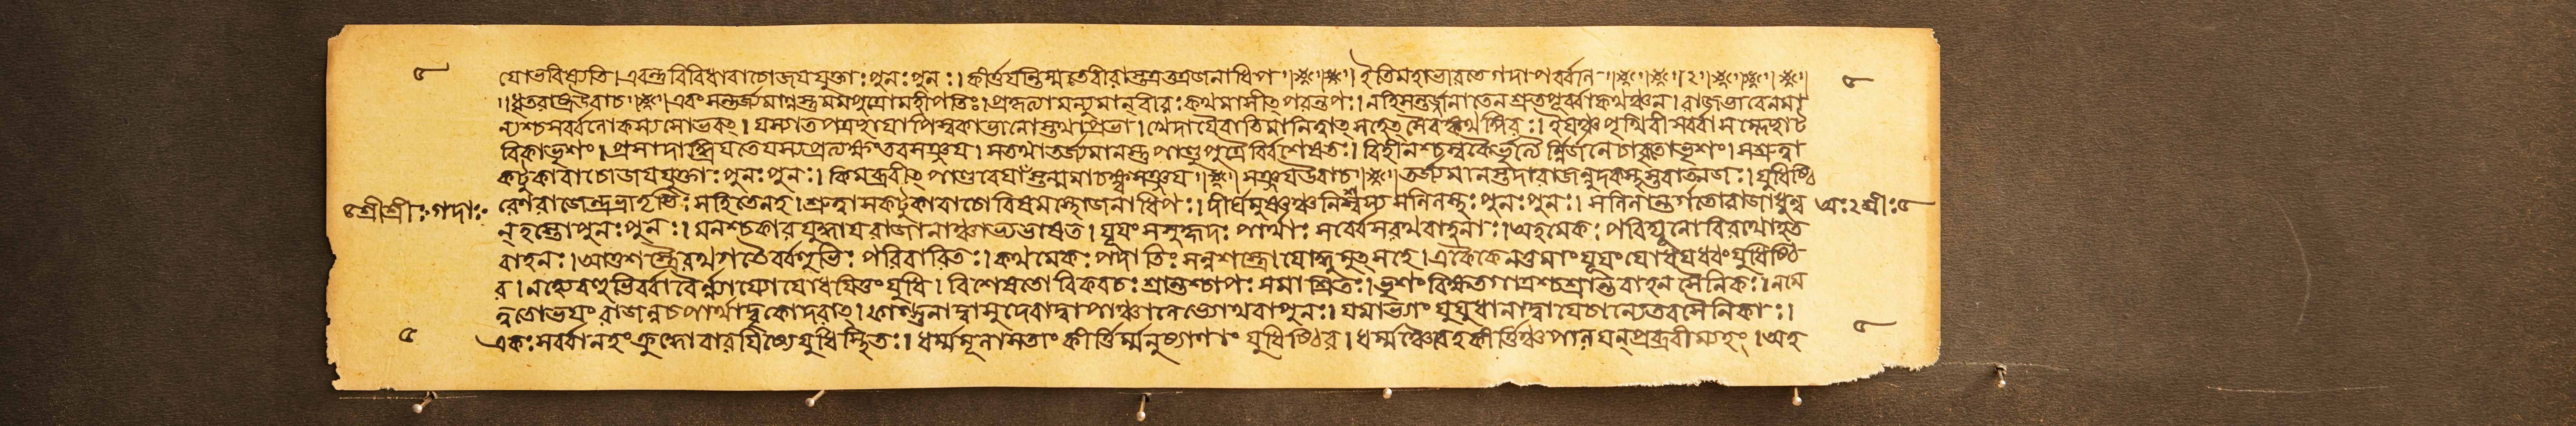 ৫
যোভবিষ্যতি। এবন্তু বিবিধাবাচোজযযুক্তাঃ পুনঃ পুনঃ। কীর্ত্তযন্তিস্ম তেবীরাস্তত্রতত্রজনাধিপ ॥ ইতিমহাভারতে গদাপর্ব্বণি ॥ ২ ॥
॥ ধৃতরাষ্ট্রউবাচ ॥ এবং সন্তর্জ্যমানস্তু মমপুত্রোমহীপতিঃ। প্রকৃত্যামন্যুমান্‌বীরঃ কথমাসীত্ পরন্তপঃ। নহিসন্তর্জনাতেন শ্রুতপূর্ব্বাকথঞ্চন। রাজভাবেনমা
ন্যশ্চসর্ব্বলোকস্য সোভবত্। ইযঞ্চ পৃথিবীসর্ব্বা সম্লেচ্ছাট
বিকাভৃশং। প্রসাদাদ্ধ্রিযতেযস্য প্রত্যক্ষংতবসঞ্জয। সতথাতর্জ্যমানস্তু পাণ্ডুপুত্রৈর্বিশেষতঃ। বিহীনশ্চস্বকৈর্ভৃত্যৈ র্ন্নির্জনেচাবৃতোভৃশং। সশ্রুত্বা
কটুকাবাচোজযযুক্তাঃ পুনঃ পুনঃ। কিমব্রবীত্ পাণ্ডবেযাংস্তন্মমাচক্ষ্বসঞ্জয ॥ সঞ্জযউবাচ ॥ তর্জ্যমানস্তদারাজন্নুদকস্থস্তবাত্মজঃ। যুধিষ্ঠি
৪শ্রীশ্রীঃ গদাঃ রেণরাজেন্দ্রভ্রাতৃভিঃ সহিতেনহ। শ্রুত্বাসকটুকাবাচোবিষমস্থোজনাধিপঃ। দীর্ঘমুষ্ণঞ্চনিশ্বস্য সলিলস্থঃ পুনঃ পুনঃ। সলিলান্তর্গতোরাজাধুন্ব অঃ২শ্রীঃ৫
ন্‌হস্তৌপুনঃ পুনঃ। মনশ্চকারযুদ্ধাযরাজানাঞ্চাভ্যভাষত। যূযংসসুহৃদঃ পার্থাঃ সর্ব্বেসরথবাহনাঃ। অহমেকঃ পরিদ্যূনোবিরথোহত
বাহনঃ। আত্তশস্ত্রৈরথগতৈর্ব্বহুভিঃ পরিবারিতঃ। কথমেকঃ পদাতিঃ সন্নশস্ত্রোযোদ্ধুমুত্সহে। একৈকেনতুমাংযূযংযোধযধ্বংযুধিষ্ঠি
র। নহ্যেবহুভির্ব্বীরৈর্ন্ন্যায্যোযোধযিতুংযুধি। বিশেষতোবিকবচঃ শ্রান্তশ্চাপঃ সমাশ্রিতঃ। ভৃশংবিক্ষতগাত্রশ্চশ্রান্তবাহনসৈনিকঃ। নমে
ত্বত্তোভযংরাজন্নচপার্থাদ্বৃকোদরাত্। ফাল্গুনাদ্বাসুদেবাদ্বাপাঞ্চালেভ্যোথবাপুনঃ। যমাভ্যাং যুযুধানাদ্বাযেচান্যেতবসৈনিকাঃ।
৫ একঃ সর্ব্বানহং ক্রুদ্ধোবারযিষ্যেযুধিস্থিতঃ। ধর্ম্মমূলাসতাংকীর্ত্তির্ম্মনুষ্যাণাং যুধিষ্ঠির। ধর্ম্মঞ্চৈবেহকীর্ত্তিঞ্চপালযন্‌প্রব্রবীম্যহং। অহ
৫